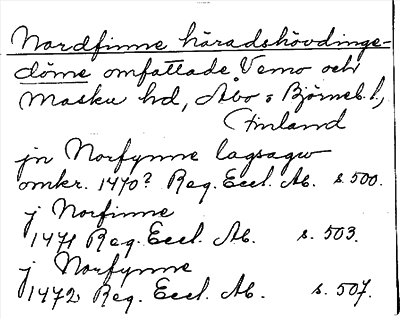 Nordfinne häradshövdinge-
döme omfattade Vemo och
Masku hd, Åbo o Björneb. l.,
Finland
jn Norfynne lagsagw
omkr. 1470? Reg. Eccl. Ab. s. 500.
j Norfinne
1471 Reg. Eccl. Ab. s. 503.
j Norfynne
1472 Reg. Eccl. Ab. s. 507.